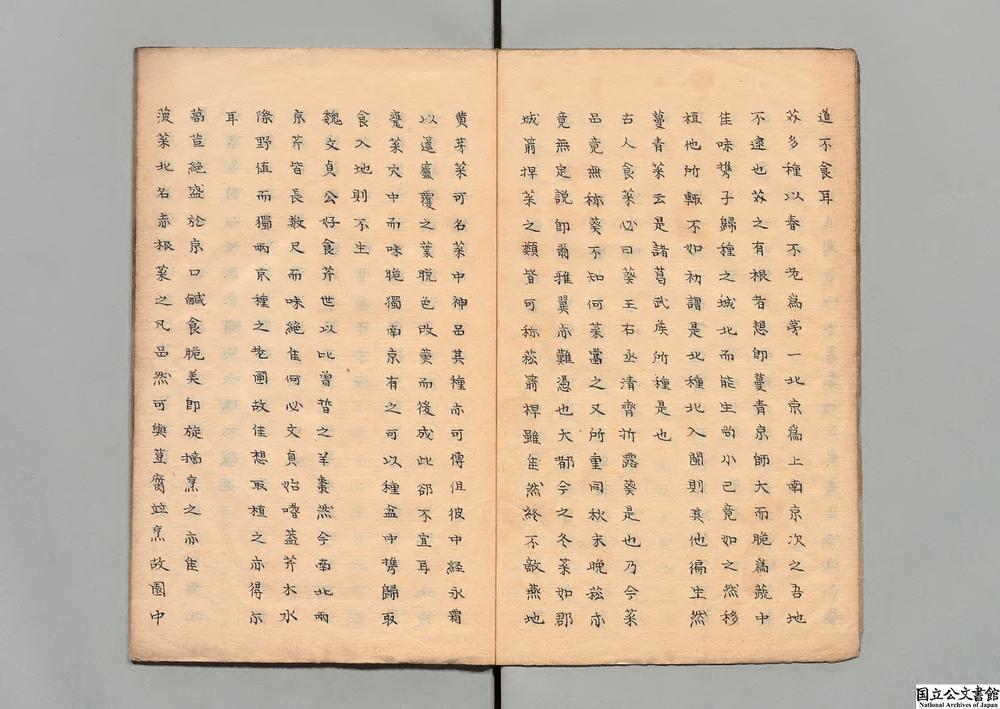 道不食耳
芥多種以春不老為第一北京為上南京次之吾地
不逮也芥之有根者想即蔓青京師大而脆為蔬中
佳味攜子歸種之城北而能生尚小已竟如之然移
植他所輒不如初謂是北種北入閩則其他徧生然
蔓青菜云是諸葛武侯所種是也
古人食菜必曰葵王右丞清齊折露葵是也乃今菜
品竟無称葵不知何菜當之又所重同秋末晚菘亦
竟無定説即爾雅翼亦難憑也大都今之冬菜如郡
城箭捍菜之類皆可称菘箭桿雖佳然終不敵燕地
黄芽菜可名菜中神品其種亦可傳但彼中経氷霜
以蘧廬覆之葉脱色改黄而後成此郤不宜耳
甕菜穴中而味脆獨南京有之可以種盆中携歸取
食入地則不生
魏文貞公好食芹世以比曾晳之羊棗然今南北兩
京芹皆長数尺而味絶佳何必文貞始嗜蓋芹本水
際野値而獨兩京種之圃故佳想取植之亦得尓
耳
萵苣絶盛於京口鹹食脆美即旋摘烹之亦佳
菠菜北名赤根菜之凡品然可與荳腐竝烹故園中
国立公文書館
National Archives of Japan